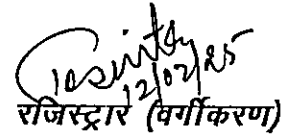 12/02/25
रजिस्ट्रार (वर्गीकरण)